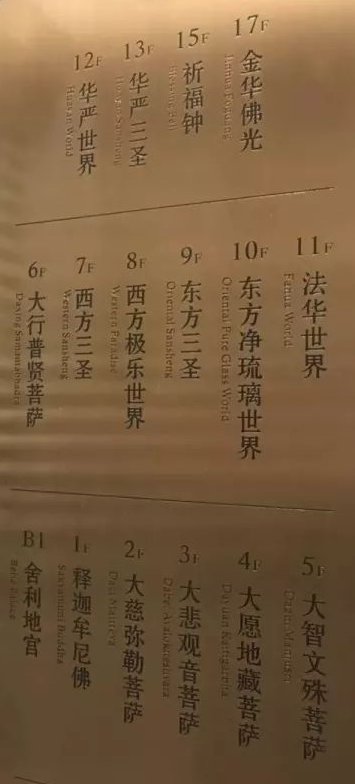 17F 金华佛光
15F 祈福钟
13F 华严三圣
12F 华严世界
Huayan World
11F 法华世界
Fahua World
10F 东方净琉璃世界
Oriental Pure Glass World
9F 东方三圣
Oriental Sansheng
8F 西方极乐世界
Western Paradise
7F 西方三圣
Western Sansheng
6F 大行普贤菩萨
Daxing Samantabhadra
5F 大智文殊菩萨
4F 大愿地藏菩萨
3F 大悲观音菩萨
2F 大慈弥勒菩萨
1F 释迦牟尼佛
Sakyamuni Buddha
B1 舍利地宫